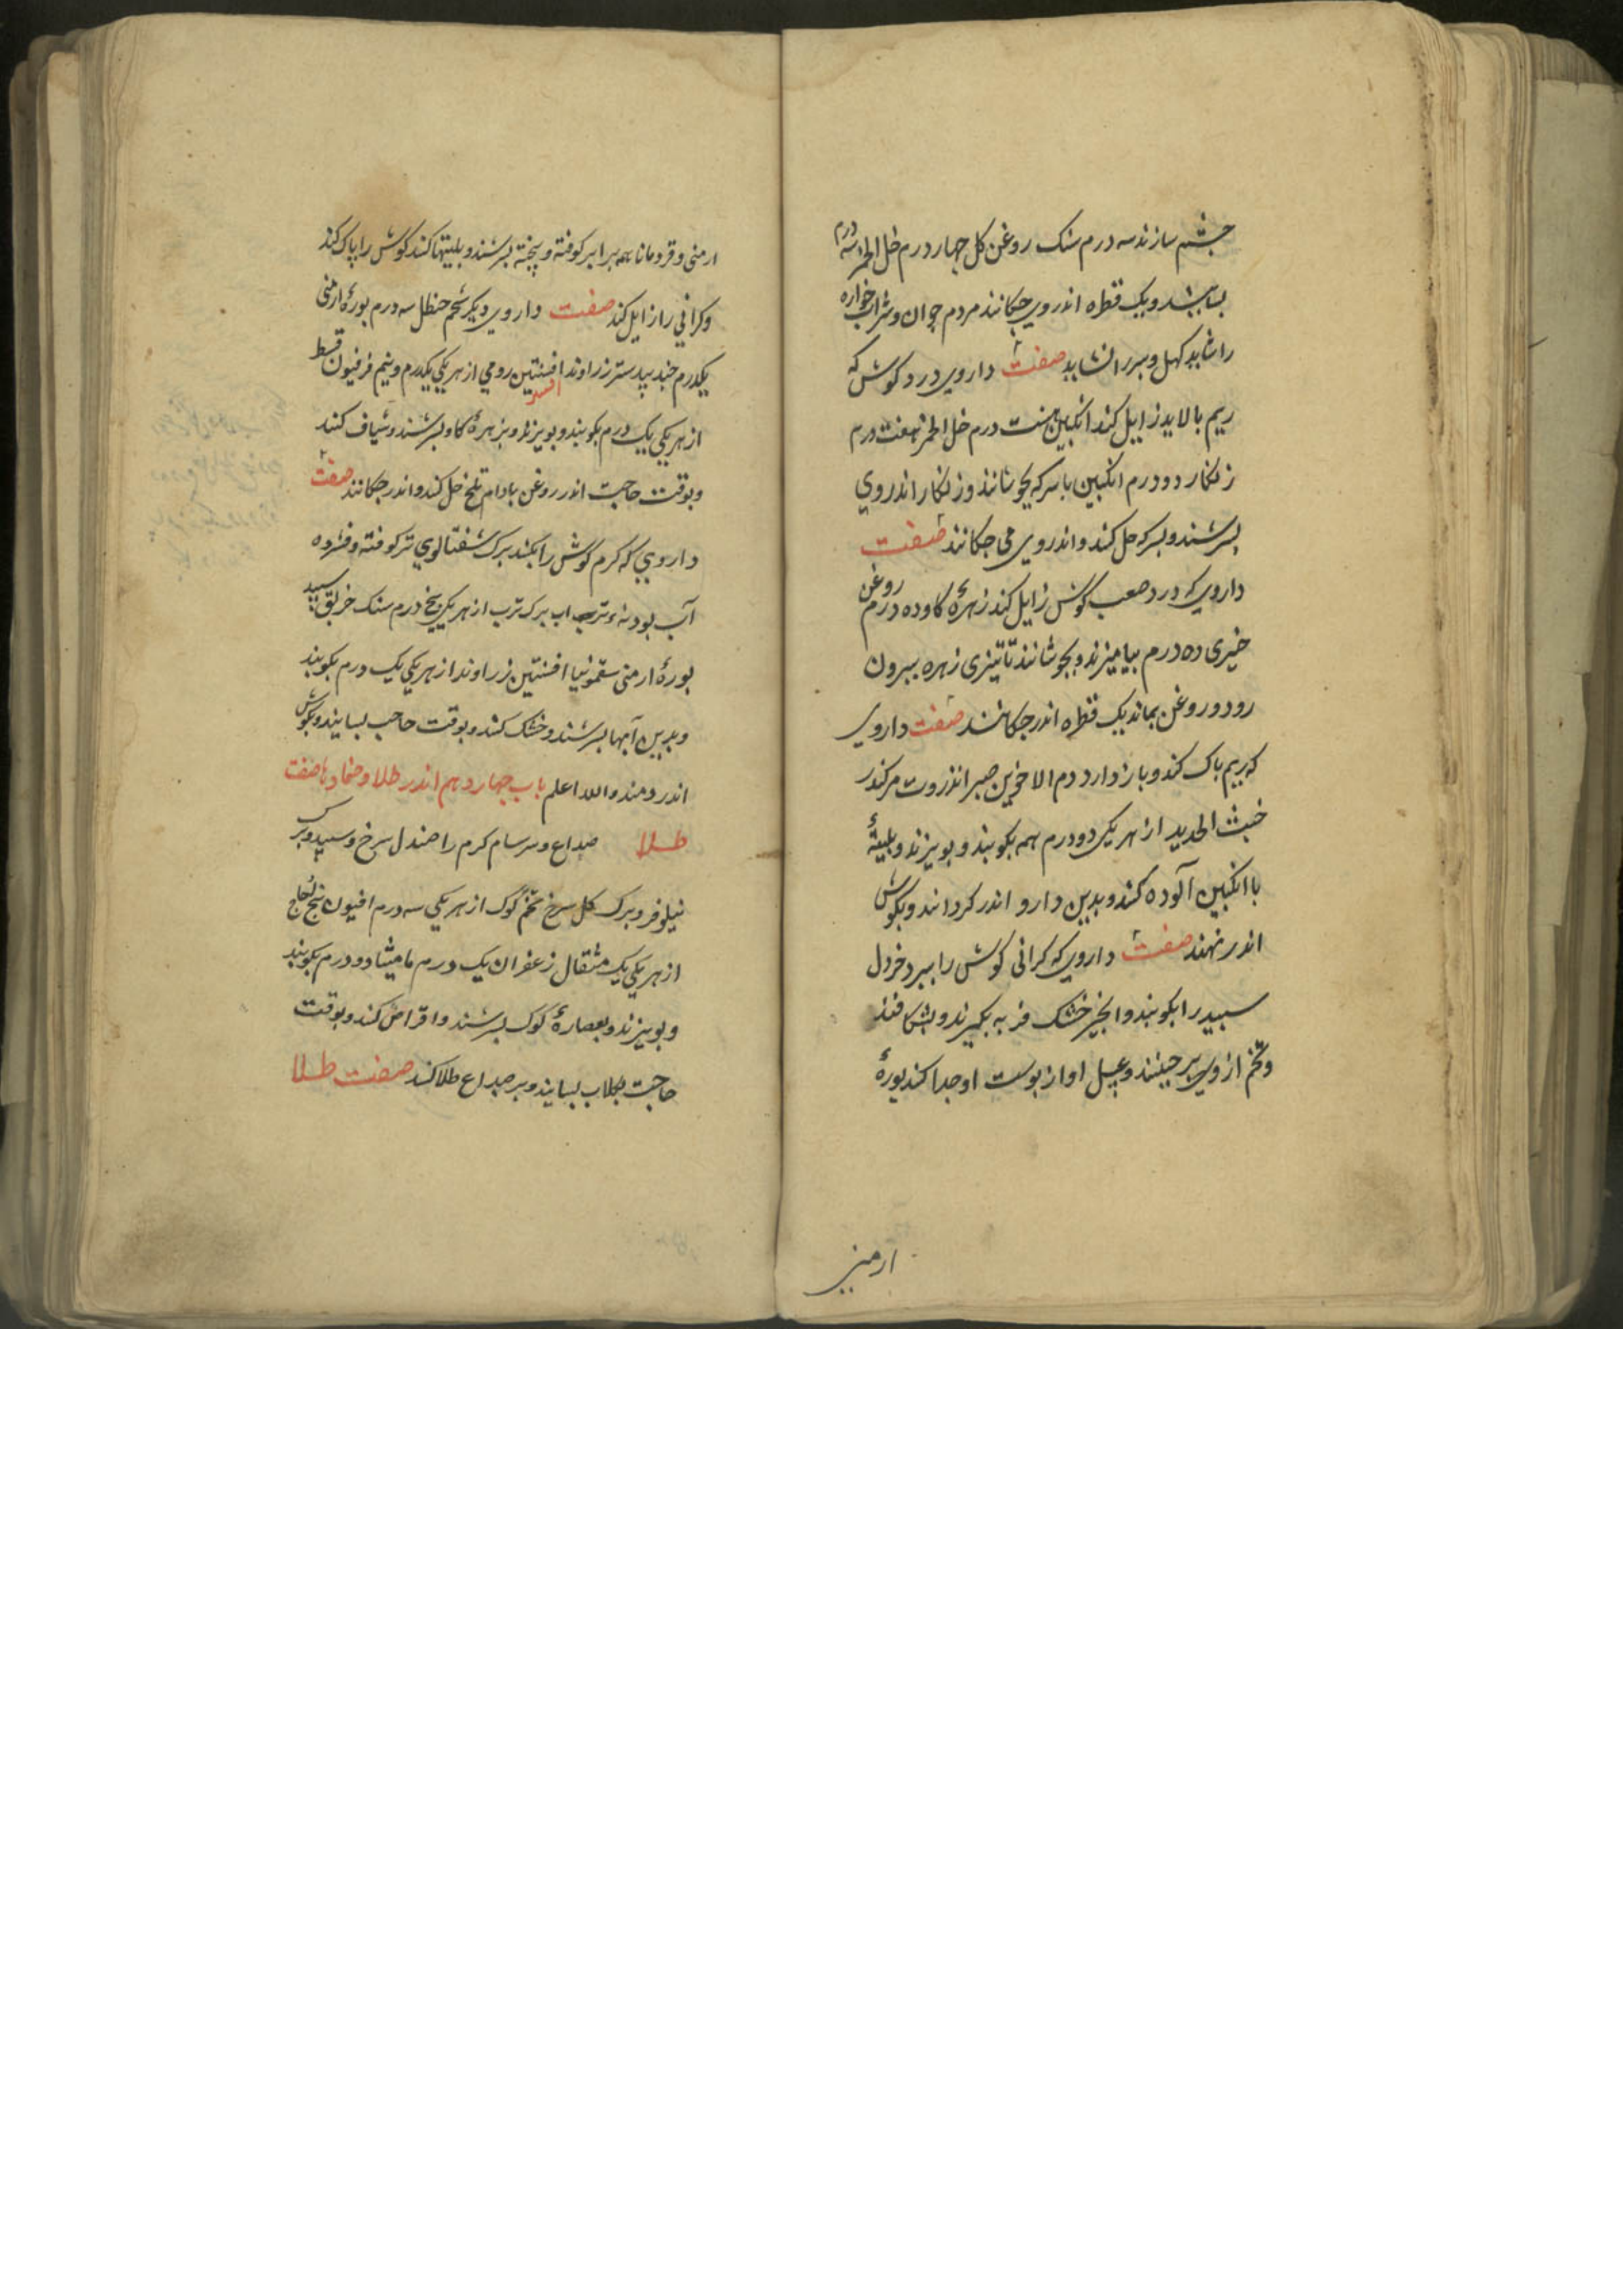 چشم سازند سه درم سنک روغن کل چهار درم خل الخمر سه درم
بسایند و یک قطره اندروی چکانند مردم جوان و شراب خواره
را شاید کهل و پیر را نشاید صفت داروی درد کوش که
ریم بالاید زایل کند انکبین بیست درم خل الخمر هفت درم
زنکار دو درم انکبین با سرکه بجوشانند و زنکار اندروی
بسرشند و بسرکه حل کند و اندروی می چکانند صفت
داروی که درد صعب کوش زایل کند زهرهٔ کاو ده درم روغن
خیری ده درم بیامیزند و بجوشانند تا تیزی زهره بیرون
رود و روغن بماند یک قطره اندر چکانند صفت داروی
که ریم پاک کند و باز دارد دم الاخوین صبر انزروت مر کندر
خبث الحدید از هر یک دو درم همه بکوبند و بویزند و بلیتهٔ
با انکبین آلوده کند و بدین دارو اندر کردانند و بکوش
اندر نهند صفت داروی که کرانی کوش را ببرد خردل
سپید را بکوبند و انجیر خشک فربه بکیرند و بشکافند
و تخم از وی برچینند و عسل او از پوست او جدا کند بورهٔ
ارمنی
ارمنی و قردمانا همه برابر کوفته و پیخته بسرشند و بلیتها کنند کوش را پاک کند
و کرانی را زایل کند صفت داروی دیکر شحم حنظل سه درم بورهٔ ارمنی
یکدرم جندبیدستر زراوند افسنتین رومی از هر یکی یکدرم و نیم فرفیون قسط
از هر یکی یک درم بکوبند و بویزند و بزهرهٔ کاو بسرشند و شیاف کنند
و بوقت حاجت اندر روغن بادام تلخ حل کند و اندر چکانند صفت
داروی که کرم کوش را بکشد برک شفتالوی تر کوفته و فشرده
آب بودنه تر آب برک ترب از هر یک پنج درم سنک خربق سپید
بورهٔ ارمنی سقمونیا افسنتین زراوند از هر یکی یک درم بکوبند
و بدین آبها بسرشند و خشک کنند و بوقت حاجت بسایند و بکوش
اندر دمند والله اعلم باب چهاردهم اندر طلا و ضمادها صفت
طلا صداع و سرسام کرم را صندل سرخ و سپید و برک
نیلوفر و برک کل سرخ تخم کوک از هر یکی سه درم افیون بیخ لفاح
از هر یکی یک مثقال زعفران یک درم مامیثا دو درم بکوبند
و بویزند و بعصارهٔ کوک بسرشند و اقراص کند و بوقت
حاجت بکلاب بسایند و بر صداع طلا کند صفت طلا